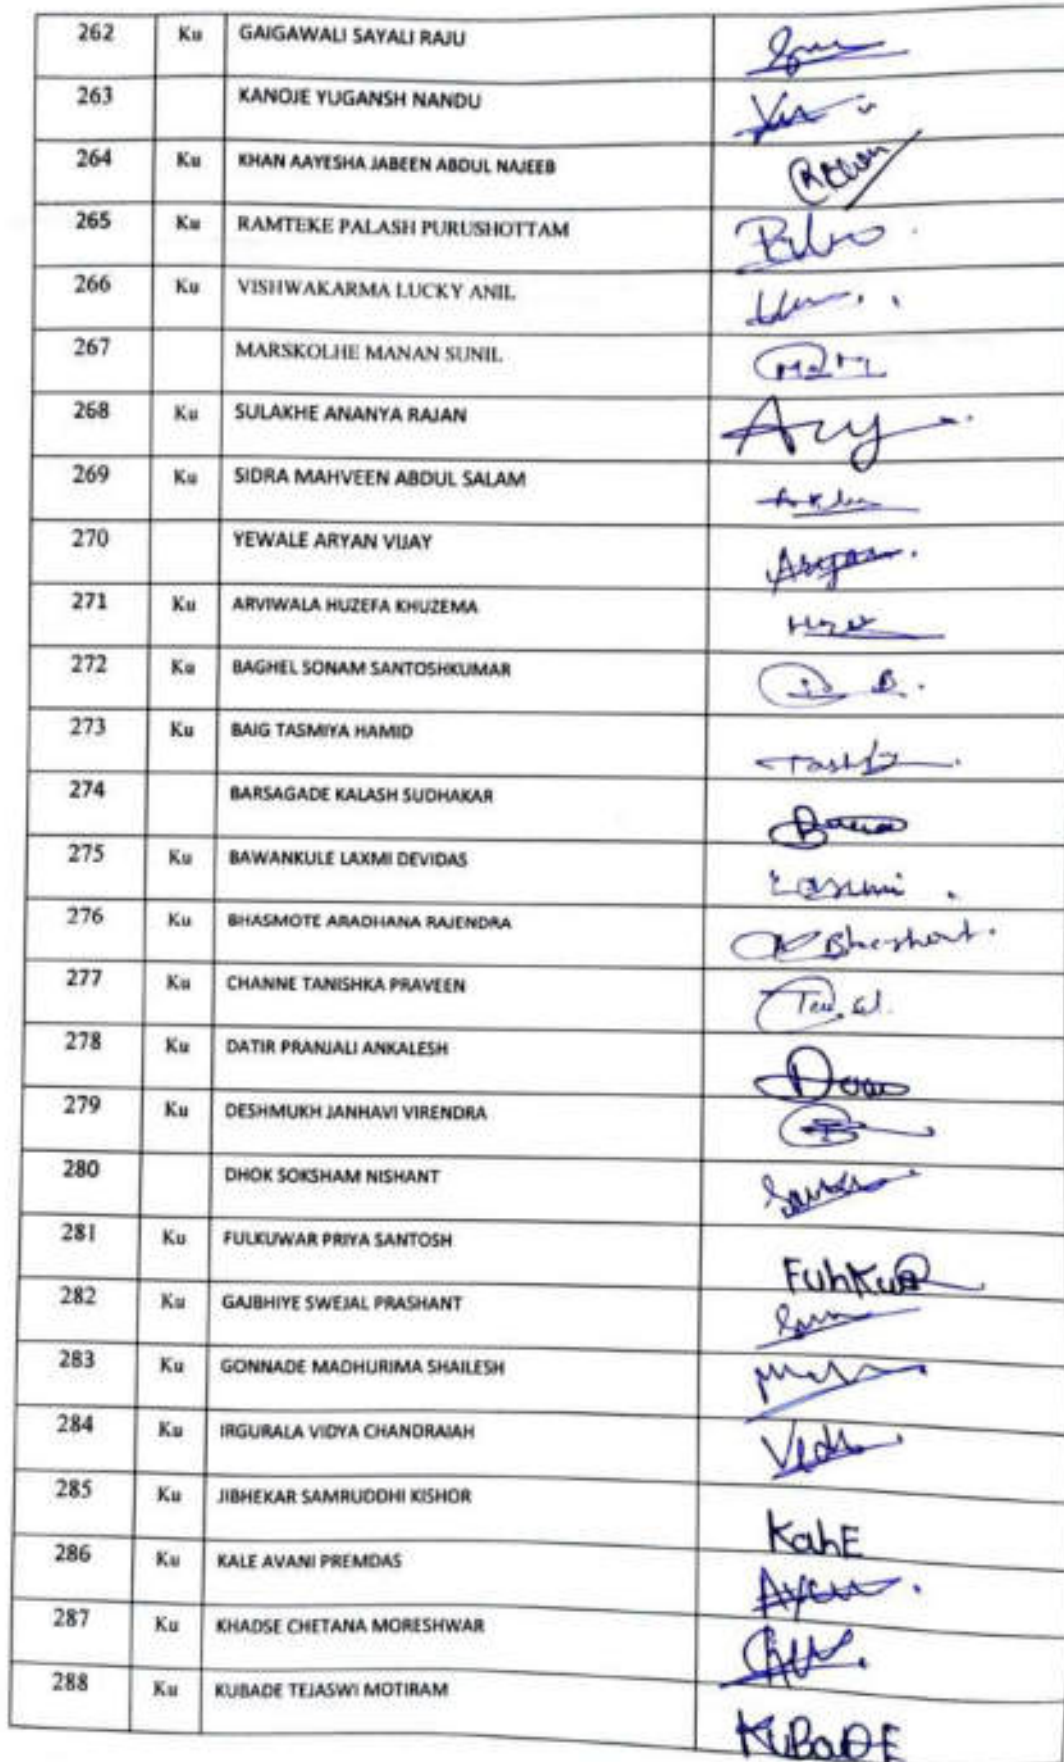 262 Ku GAIGAWALI SAYALI RAJU
263 KANOJE YUGANSH NANDU
264 Ku KHAN AAYESHA JABEEN ABDUL NAJEEB
265 Ku RAMTEKE PALASH PURUSHOTTAM
266 Ku VISHWAKARMA LUCKY ANIL
267 MARSKOLHE MANAN SUNIL
268 Ku SULAKHE ANANYA RAJAN
269 Ku SIDRA MAHVEEN ABDUL SALAM
270 YEWALE ARYAN VIJAY
271 Ku ARVIWALA HUZEFA KHUZEMA
272 Ku BAGHEL SONAM SANTOSHKUMAR
273 Ku BAIG TASMIYA HAMID
274 BARSAGADE KALASH SUDHAKAR
275 Ku BAWANKULE LAXMI DEVIDAS
276 Ku BHASMOTE ARADHANA RAJENDRA
277 Ku CHANNE TANISHKA PRAVEEN
278 Ku DATIR PRANJALI ANKALESH
279 Ku DESHMUKH JANHAVI VIRENDRA
280 DHOK SOKSHAM NISHANT
281 Ku FULKUWAR PRIYA SANTOSH
282 Ku GAJBHIYE SWEJAL PRASHANT
283 Ku GONNADE MADHURIMA SHAILESH
284 Ku IRGURALA VIDYA CHANDRAIAH
285 Ku JIBHEKAR SAMRUDDHI KISHOR
286 Ku KALE AVANI PREMDAS
287 Ku KHADSE CHETANA MORESHWAR
288 Ku KUBADE TEJASWI MOTIRAM KUBaDE